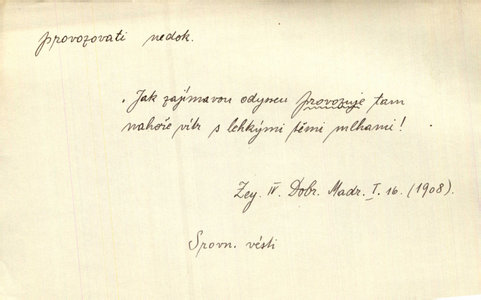 provozovati nedok.
„Jak zajímavou odyseu provozuje tam
nahoře vítr s lehkými těmi mlhami!
Zey. IV. Dobr. Madr. I. 16. (1908).
Srovn. vésti